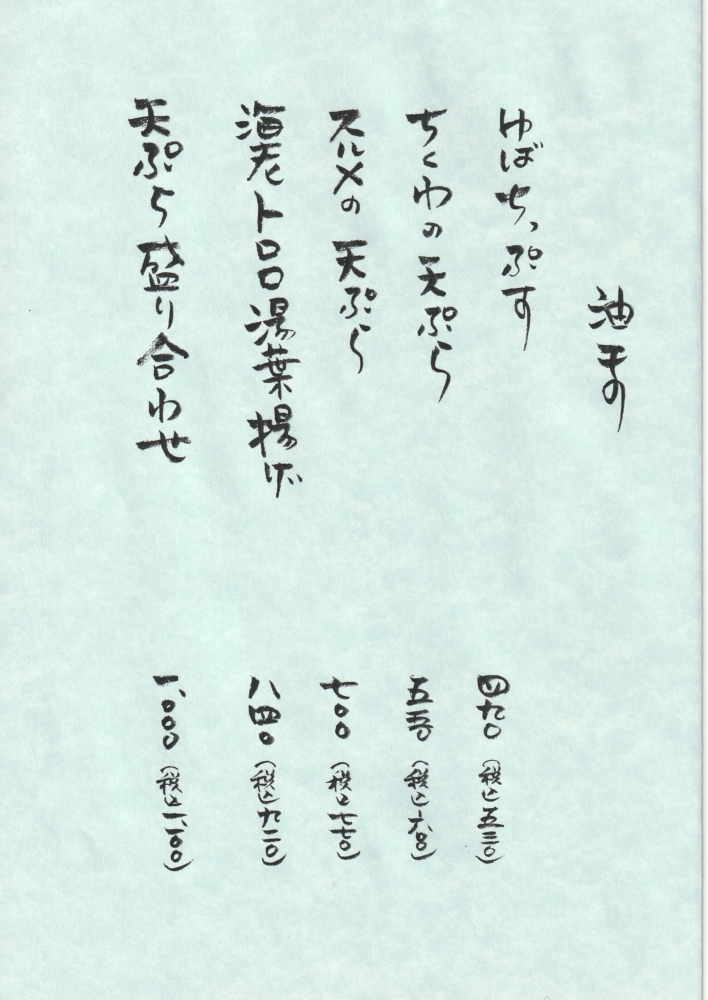 油もの
ゆばちっぷす 四九〇(税込五三〇)
ちくわの天ぷら 五五〇(税込六〇〇)
スルメの天ぷら 七〇〇(税込七七〇)
海老トロロ湯葉揚げ 八四〇(税込九二〇)
天ぷら盛り合わせ 一、〇〇〇(税込一、一〇〇)